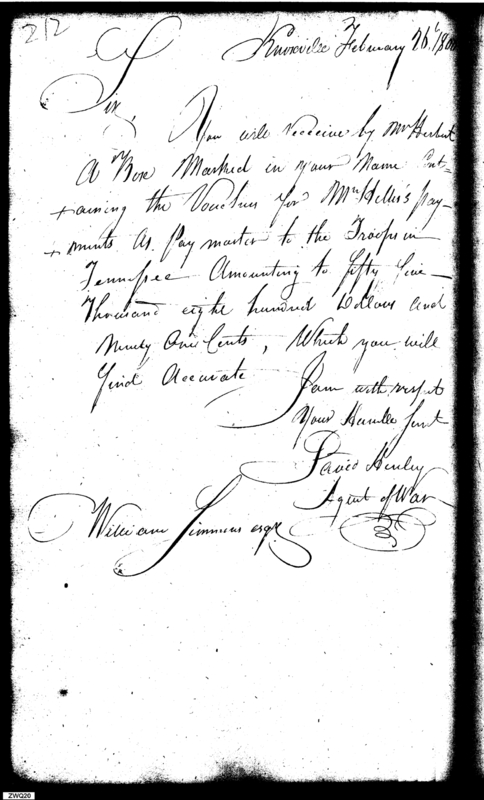 212
Knoxville February 26t 1800
Sir,
You will receive by Mr Herbert
A Box Marked in your Name Cont-
+ aining the Vouchers for Mr Hillis's pay-
+ ments As Pay master to the Troops in
Tennessee Amounting to fifty five
Thousand eight hundred Dollars and
Ninety One Cents, Which you will
find Accurate
I am with respt
Your Humble Servt
David Henley
Agent of War
William Simmons esqr
ZWQ20